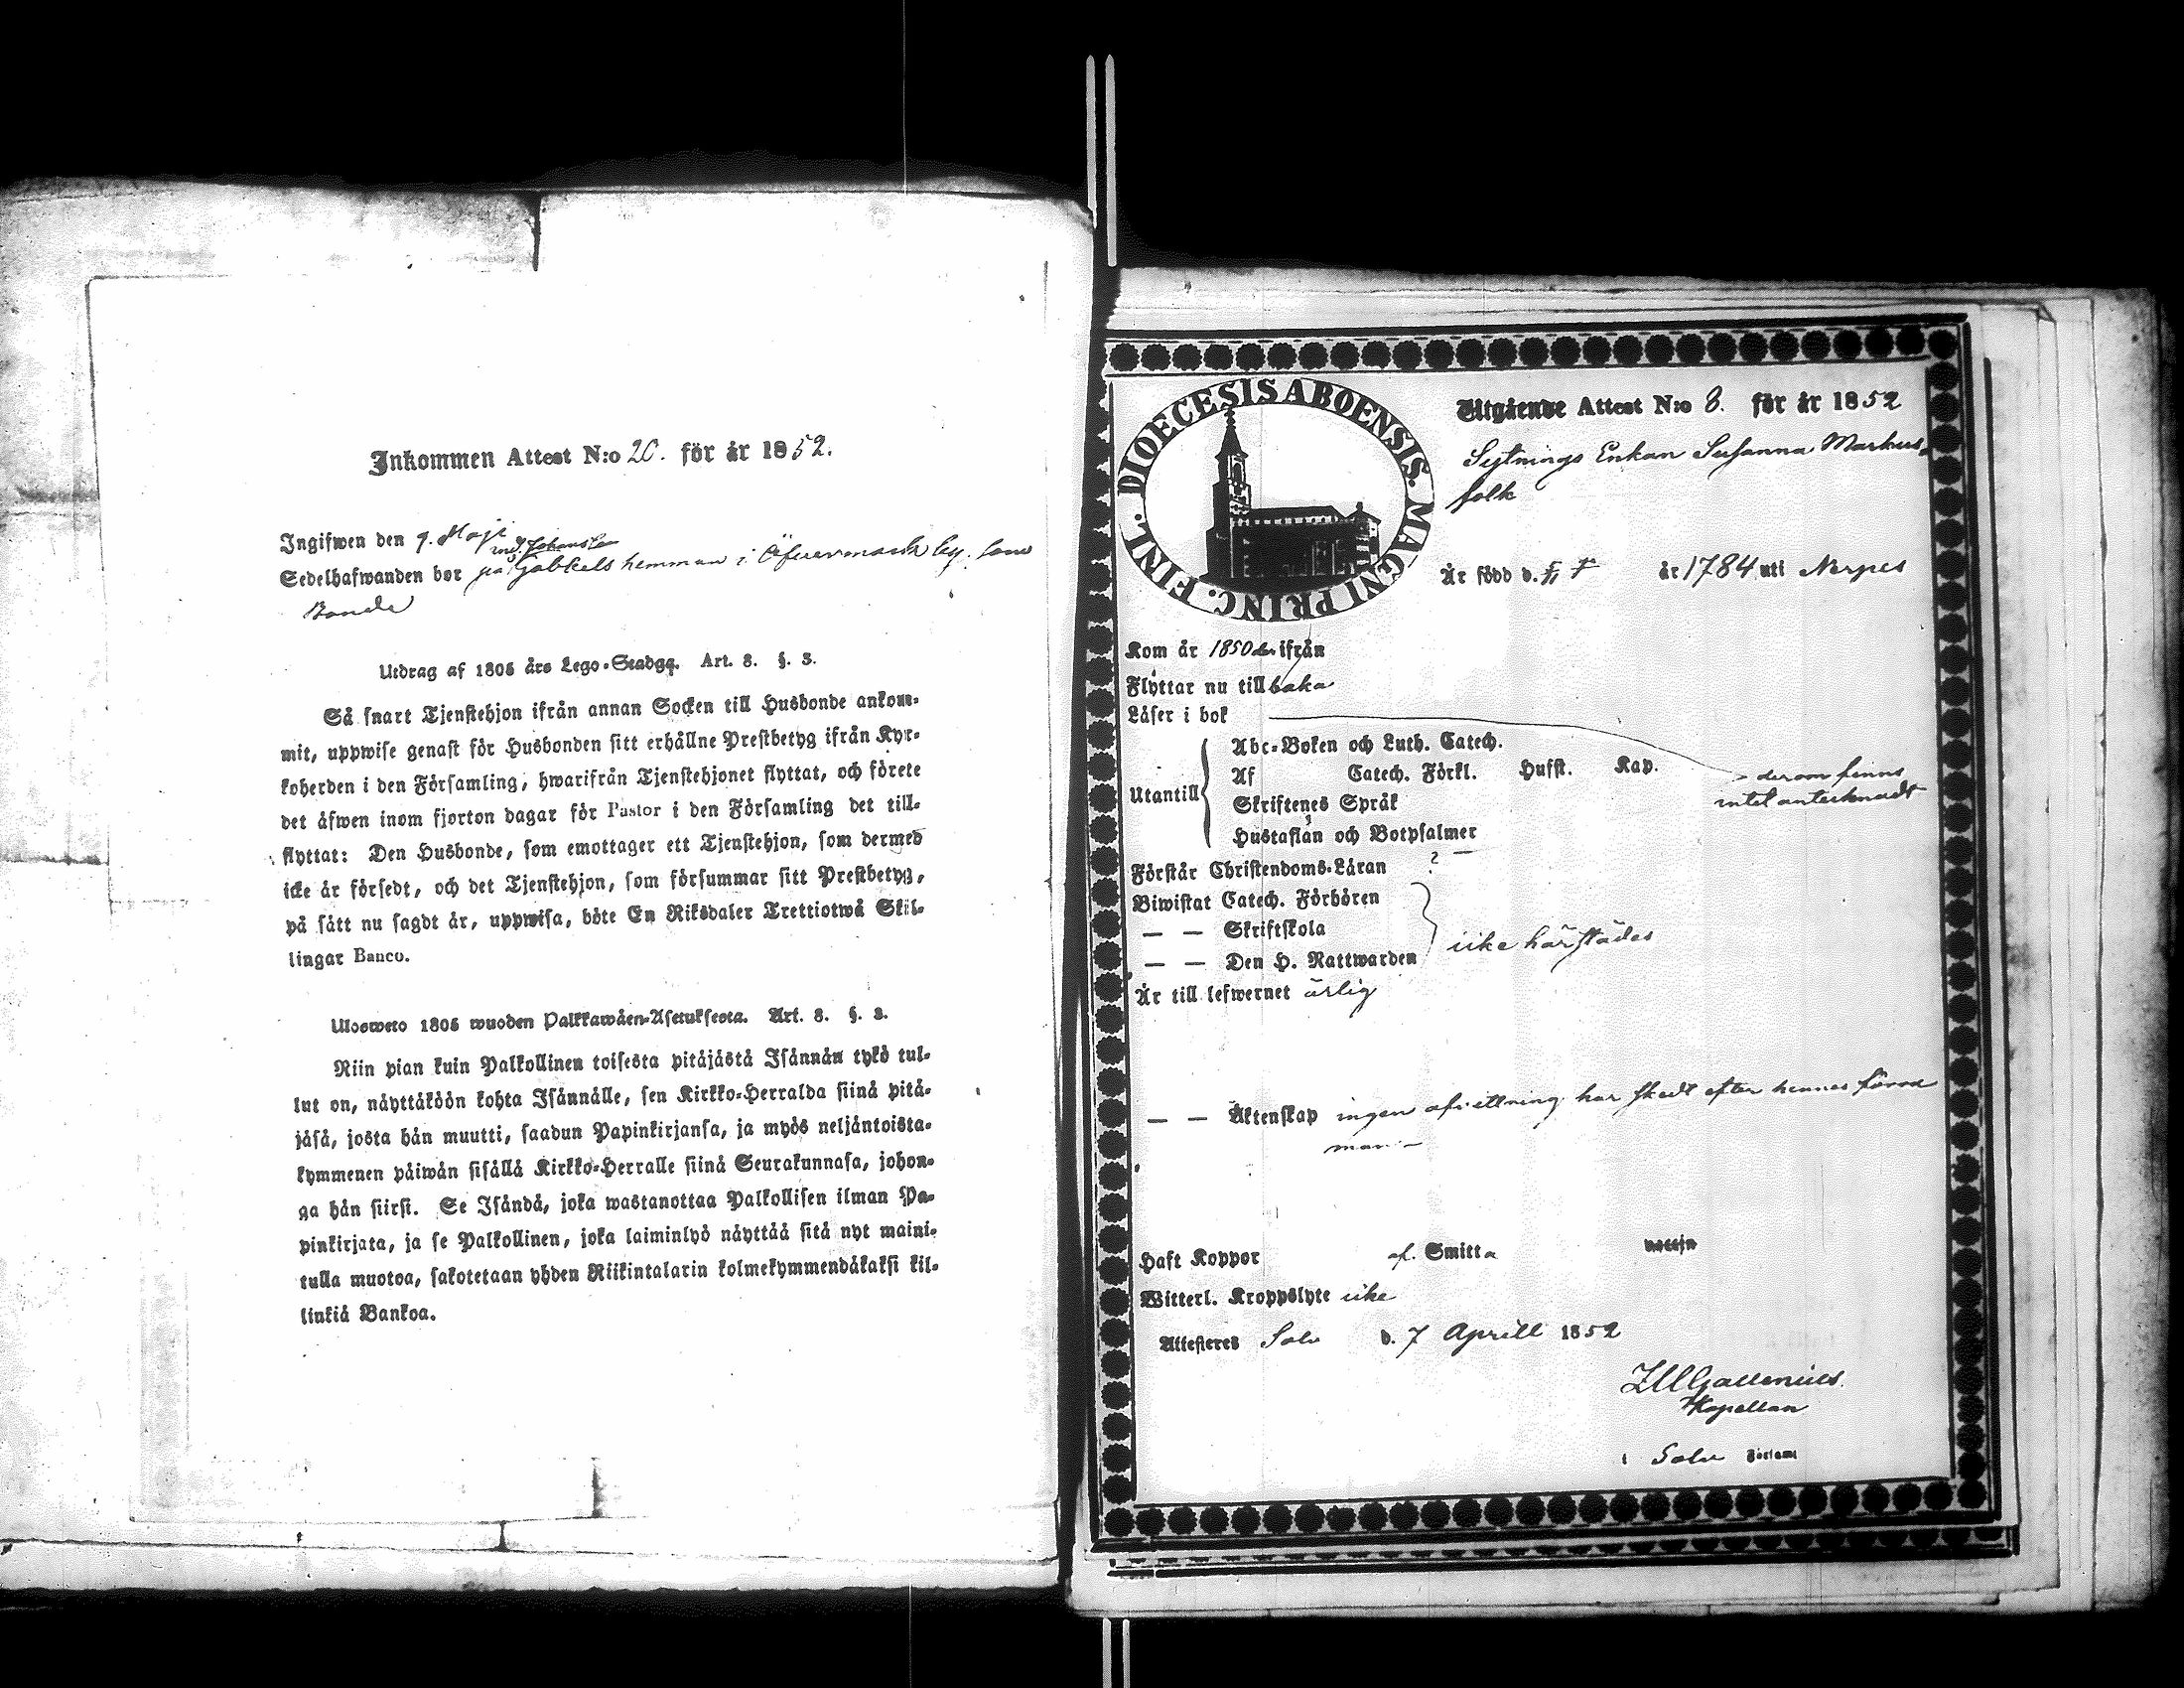 Inkommen Attest N:o 20. för år 1852.
Ingifwen den 9. Maji
Sedelhafwanden bor på Gabbels hemman i Öfvermark by. som
Bonde
Utdrag af 1805 års Lego-Stadga. Art. 8. §. 3.
Så snart Tjenstehjon ifrån annan Socken till Husbonde ankom-
mit, uppwise genast för Husbonden sitt erhållne Prestbetyg ifrån Kyr-
koherden i den Församling, hwarifrån Tjenstehjonet flyttat, och förete
det äfwen inom fjorton dagar för Pastor i den Församling det till-
flyttat: Den Husbonde, som emottager ett Tjenstehjon, som dermed
icke är försedt, och det Tjenstehjon, som försummar sitt Prestbetyg,
på sätt nu sagdt är, uppwisa, böte En Riksdaler Trettiotwå Skil-
lingar Banco.
Ulosweto 1805 wuoden Palkkawäen-Asetuksesta. Art. 8. §. 3.
Niin pian kuin Palkollinen toisesta pitäjästä Isännän tykö tul-
lut on, näyttäköön kohta Isännälle, sen Kirkko-Herralda siinä pitä-
jäsä, josta hän muutti, saadun Papinkirjansa, ja myös neljäntoista-
kymmenen päiwän sisällä Kirkko-Herralle siinä Seurakunnasa, johon-
ga hän siirsi. Se Isändä, joka wastanottaa Palkollisen ilman Pa-
pinkirjata, ja se Palkollinen, joka laiminlyö näyttää sitä nyt maini-
tulla muotoa, sakotetaan yhden Riikintalarin kolmekymmendäkaksi kil-
linkiä Bankoa.
DIOECESIS ABOENSIS. MAGNI PRINC. FINL.
Utgående Attest N:o 8. för år 1852
Sytnings Enkan Susanna Markus
folk
Är född d. år 1784 uti Nerpes
Kom år 1850 ifrån
Flyttar nu tillbaka
Läser i bok
Utantill
Abc-Boken och Luth. Catech.
Af Catech. Förkl. Husst. Kap.
Skriftenes Språk
Hustaflan och Botpsalmer
derom finns
intet antecknadt
Förstår Christendoms-Läran ?
Biwistat Catech. Förhören
— — Skriftskola
— — Den H. Nattwarden
icke härstädes
Är till lefwernet ärlig
— — Äktenskap ingen afvittning har skedt efter hennes förra
man
Haft Koppor af Smitta
Witterl. Kroppslyte icke
Attesteres Solv d. 7 Aprill 1852
Kapellan
i Solv Förlamt